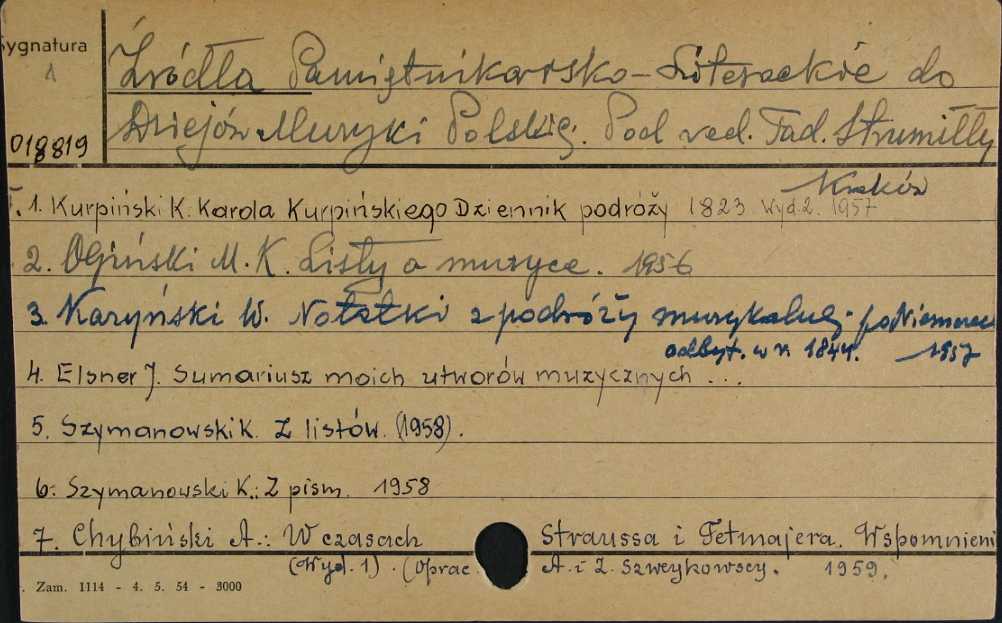 Sygnatura
1
018819
Źródła Pamiętnikarsko-Literackie do
Dziejów Muzyki Polskiej. Pod red. Tad. Strumiłły
Kraków
T. 1. Kurpiński K. Karola Kurpińskiego Dziennik podróży 1823 Wyd 2. 1957
2. Ogiński M. K. Listy o muzyce. 1956
3. Kazyński W. Notatki z podróży muzykalnej po Niemczech
odbyt. w r. 1844. 1957
4. Elsner J. Sumariusz moich utworów muzycznych ...
5. Szymanowski K. Z listów. (1958).
6. Szymanowski K.: Z pism. 1958
7. Chybiński A.: W czasach Straussa i Tetmajera. Wspomnieni
(Wyd. 1). (Oprac. A. i Z. Szweykowscy. 1959.
Zam. 1114 - 4. 5. 54 - 3000